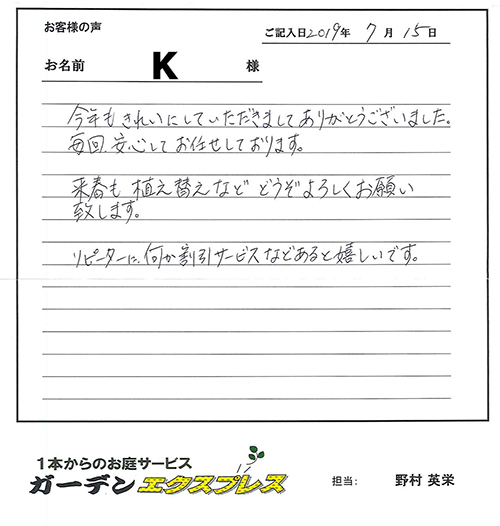 お客様の声
ご記入日2019年 7月 15日
お名前 K 様
今年もきれいにしていただきましてありがとうございました。
毎回、安心してお任せしております。
来春も 植え替えなど どうぞよろしくお願い
致します。
リピーターに、何か割引サービスなどあると嬉しいです。
1本からのお庭サービス
ガーデンエクスプレス
担当: 野村 英栄